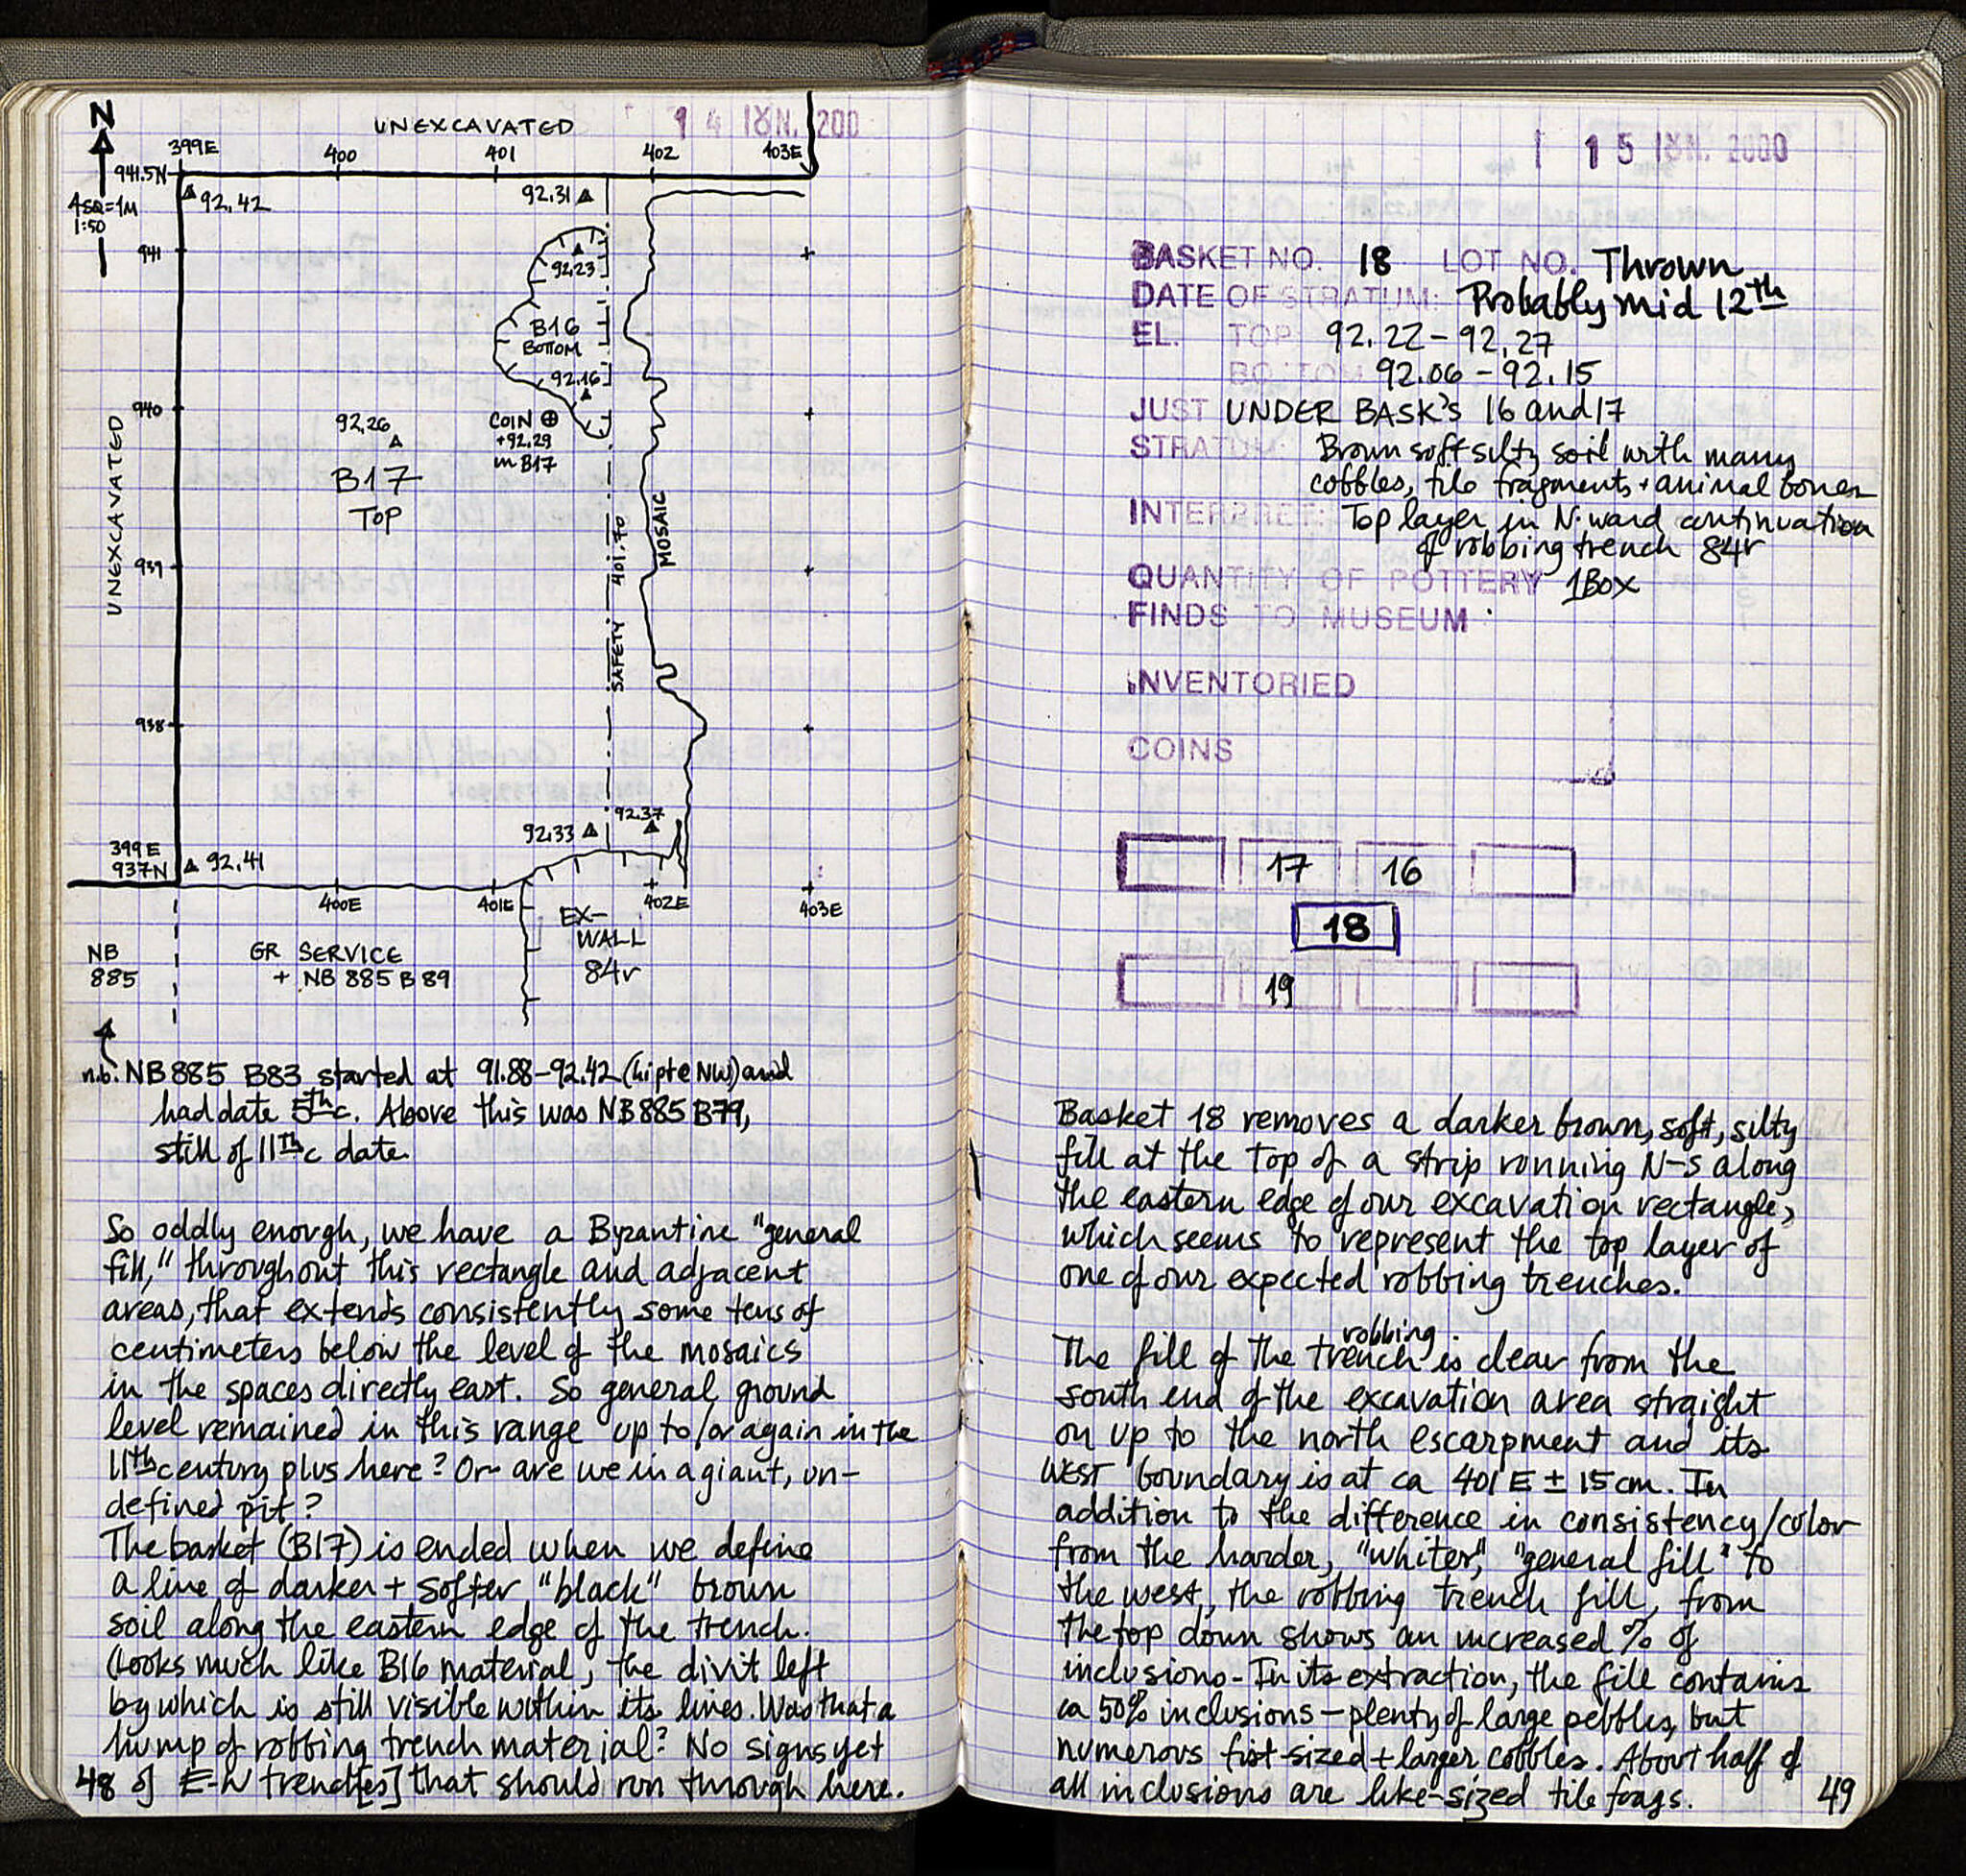 N
UNEXCAVATED
14 ΙΟΥΝ. 200
399E
400
401
402
403E
941.5N
92.42
92.31
4SQ=1M
1:50
941
92.23
B16
BOTTOM
92.16
940
92.26
COIN ⊕
+92.29
in B17
B17
TOP
UNEXCAVATED
939
SAFETY 401.70
MOSAIC
938
92.37
92.33
399E
937N
92.41
400E
401E
402E
403E
EX-
WALL
84r
NB
885
GR SERVICE
+ NB 885 B 89
n.b. NB 885 B83 started at 91.88-92.42 (hi pt @ NW) and
had date 5th c. Above this was NB 885 B79,
still of 11th c date.
So oddly enough, we have a Byzantine "general
fill," throughout this rectangle and adjacent
areas, that extends consistently some tens of
centimeters below the level of the mosaics
in the spaces directly east. So general ground
level remained in this range up to/or again in the
11th century plus here? Or are we in a giant, un-
defined pit?
The basket (B17) is ended when we define
a line of darker + softer "black" brown
soil along the eastern edge of the trench.
(Looks much like B16 material, the divit left
by which is still visible within its lines. Was that a
hump of robbing trench material? No signs yet
of E-W trench[es] that should run through here.
48
15 ΙΟΥΝ. 2000
BASKET NO. 18 LOT NO. Thrown
DATE OF STRATUM: Probably mid 12th
EL. TOP 92.22-92.27
BOTTOM 92.06-92.15
JUST UNDER BASK'S 16 and 17
STRATUM: Brown soft silty soil with many
cobbles, tile fragments + animal bones
INTERPRET: Top layer in N.ward continuation
of robbing trench 84r
QUANTITY OF POTTERY 1 Box
FINDS TO MUSEUM:
INVENTORIED
COINS
17 16
18
19
Basket 18 removes a darker brown, soft, silty
fill at the top of a strip running N-S along
the eastern edge of our excavation rectangle,
which seems to represent the top layer of
one of our expected robbing trenches.
robbing
The fill of the trench is clear from the
south end of the excavation area straight
on up to the north escarpment and its
WEST boundary is at ca 401 E ± 15 cm. In
addition to the difference in consistency/color
from the harder, "whiter," "general fill" to
the west, the robbing trench fill, from
the top down shows an increased % of
inclusions. In its extraction, the fill contains
ca 50% inclusions - plenty of large pebbles, but
numerous fist-sized + larger cobbles. About half of
all inclusions are like-sized tile frags.
49